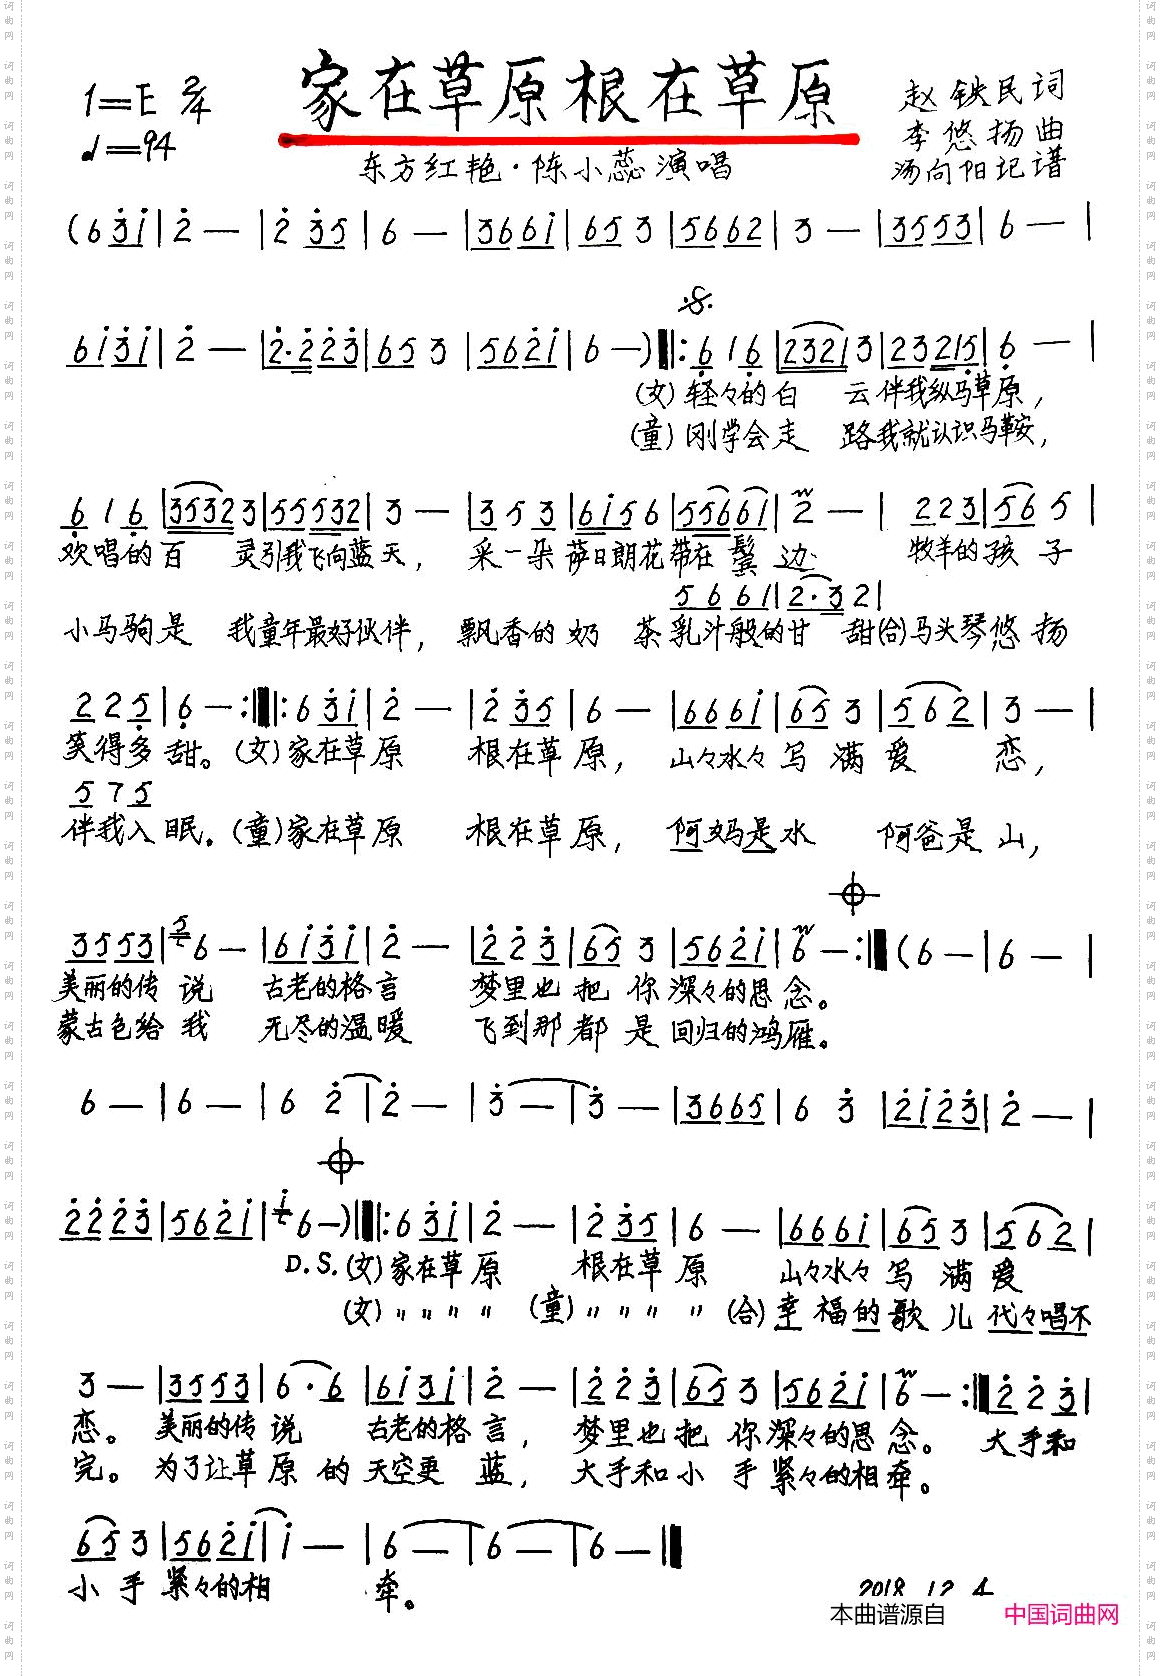 家在草原根在草原
1=E 2/4
♩=94
赵铁民词
李悠扬曲
汤向阳记谱
东方红艳·陈小蕊演唱
(6 3̇1̇|2̇ —|2̇ 3̇5|6 —|3661̇|65 3|5662|3 —|3553|6 —|
61̇3̇1̇|2̇ —|2̇·2̇2̇3̇|65 3|562̇1̇|6 —)‖:6̣ 1 6̣|2321 3|23215̣|6̣ —|
(女)轻々的白 云伴我纵马草原,
(童)刚学会走 路我就认识马鞍,
6̣ 1 6̣|3532 3|55532|3 —|3 5 3|61̇56|55661̇|2̇ —|2 2 3|56 5|
欢唱的百 灵引我飞向蓝天, 采一朵萨日朗花带在鬓边 牧羊的孩子
5 6 61|2·32|
小马驹是 我童年最好伙伴, 飘香的奶 茶乳汁般的甘 甜(合)马头琴悠扬
2 2 5̣|6̣ —:‖:6 3̇1̇|2̇ —|2̇ 3̇5|6 —|6661̇|65 3|5 6 2|3 —|
笑得多甜。(女)家在草原 根在草原, 山々水々写满爱 恋,
5 7 5
伴我入眠。(童)家在草原 根在草原, 阿妈是水 阿爸是山,
3553|6 —|61̇3̇1̇|2̇ —|2̇ 2̇ 3̇|65 3|562̇1̇|6 —:‖(6 —|6 —|
美丽的传说 古老的格言 梦里也把你深々的思念。
蒙古包给我 无尽的温暖 飞到那都是回归的鸿雁。
6 —|6 —|6 2̇|2̇ —|3̇ —|3̇ —|3665|6 3̇|2̇1̇2̇3̇|2̇ —|
2̇2̇2̇3̇|562̇1̇|6 —)‖:6 3̇1̇|2̇ —|2̇ 3̇5|6 —|6661̇|65 3|5 6 2|
D.S.(女)家在草原 根在草原 山々水々写满爱
(女)〃〃〃〃 (童)〃〃〃〃 (合)幸福的歌儿代々唱不
3 —|3553|6·6|61̇3̇1̇|2̇ —|2̇ 2̇ 3̇|65 3|562̇1̇|6 —:‖2̇ 2̇ 3̇|
恋。美丽的传说 古老的格言, 梦里也把你深々的思念。 大手和
完。为了让草原的天空更蓝, 大手和小手紧々的相牵。
65 3|562̇1̇|1̇ —|6 —|6 —|6 —‖
小手紧々的相 牵。
2018 12 4
本曲谱源自 中国词曲网